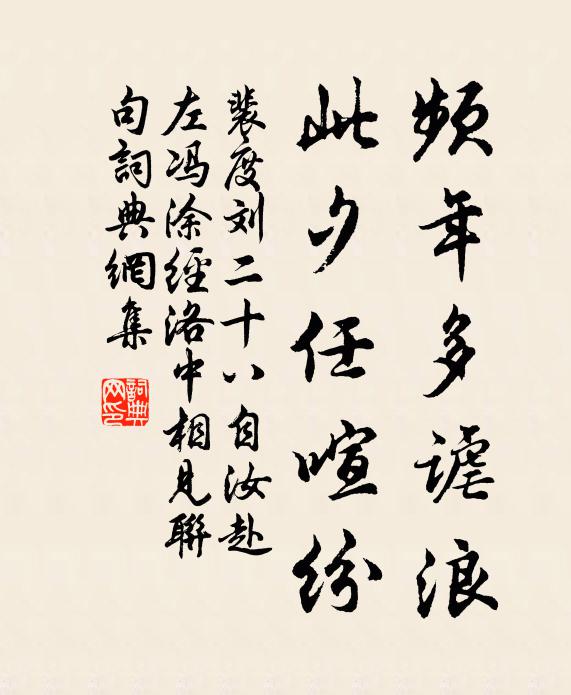 频年多谑浪
此夕任喧纷
裴度刘二十八自汝赴
左冯涂經洛中相見聯
句詞典網集
詞典网印